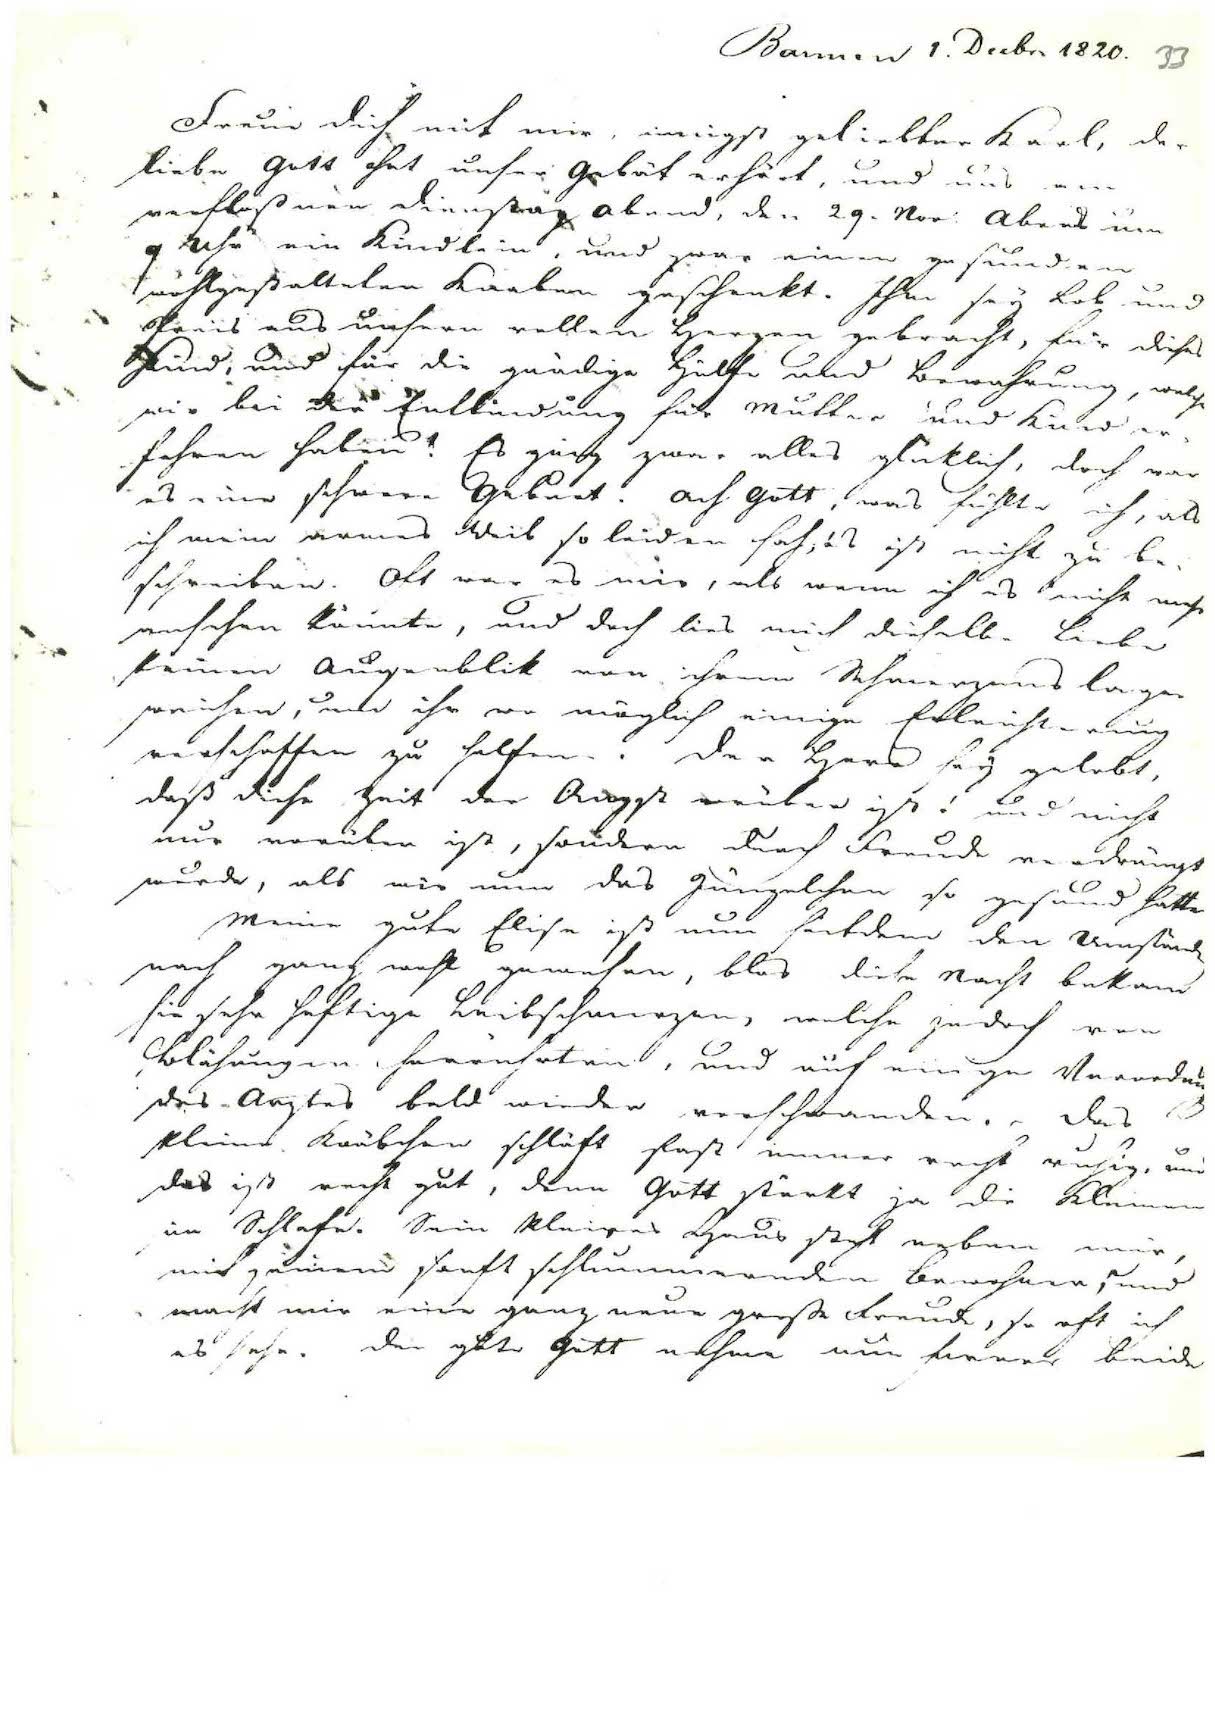 Barmen 1. Decbr 1820. 33
Freue dich mit mir, innigst geliebter Karl, der
liebe Gott hat unser Gebät erhört, und uns am
verfloßnen Dienstag Abend, den 29. Nov. Abends um
9 Uhr ein Kindlein, und zwar einen gesunden
wohlgestalteten Knaben geschenkt. Ihm sey Lob und
Preis aus unsern vollen Herzen gebracht, für dieses
Kind, und für die gnädige Hülfe und Bewahrung, welche
wir bei der Entbindung für Mutter und Kind er-
fahren haben! Es ging zwar alles glücklich, doch war
es eine schwere Geburt. Ach Gott, was fühlte ich, als
ich mein armes Weib so leiden sah, es ist nicht zu be-
schreiben. Oft war es mir, als wenn ich es nicht mehr
ansehen könnte, und doch lies mich dieselbe Liebe
keinen Augenblik von ihrem Schmerzens lager
weichen, um ihr wo möglich einige Erleichterung
verschaffen zu helfen. Der Herr sey gelobt,
daß diese Zeit der Angst vorüber ist! und nicht
nur vorüber ist, sondern durch Freude verdrängt
wurde, als wir nun das Jüngelchen so gesund hatten
Meine gute Elise ist nun seitdem den Umständen
nach ganz wohl gewesen, blos diese Nacht bekam
sie sehr heftige Leibschmerzen, welche jedoch von
Blähungen herrührten, und auf einige Verordnung
des Arztes bald wieder verschwanden. – Das
kleine Knäbchen schläft fast immer recht ruhig, und
das ist recht gut, denn Gott stärkt ja die Kleinen
im Schlafe. Sein kleines Haus steht neben mir,
mit seinem sanft schlummernden Bewohner, und
macht mir eine ganz neue große Freude, so oft ich
es sehe. Der gute Gott nehme nun ferner beide